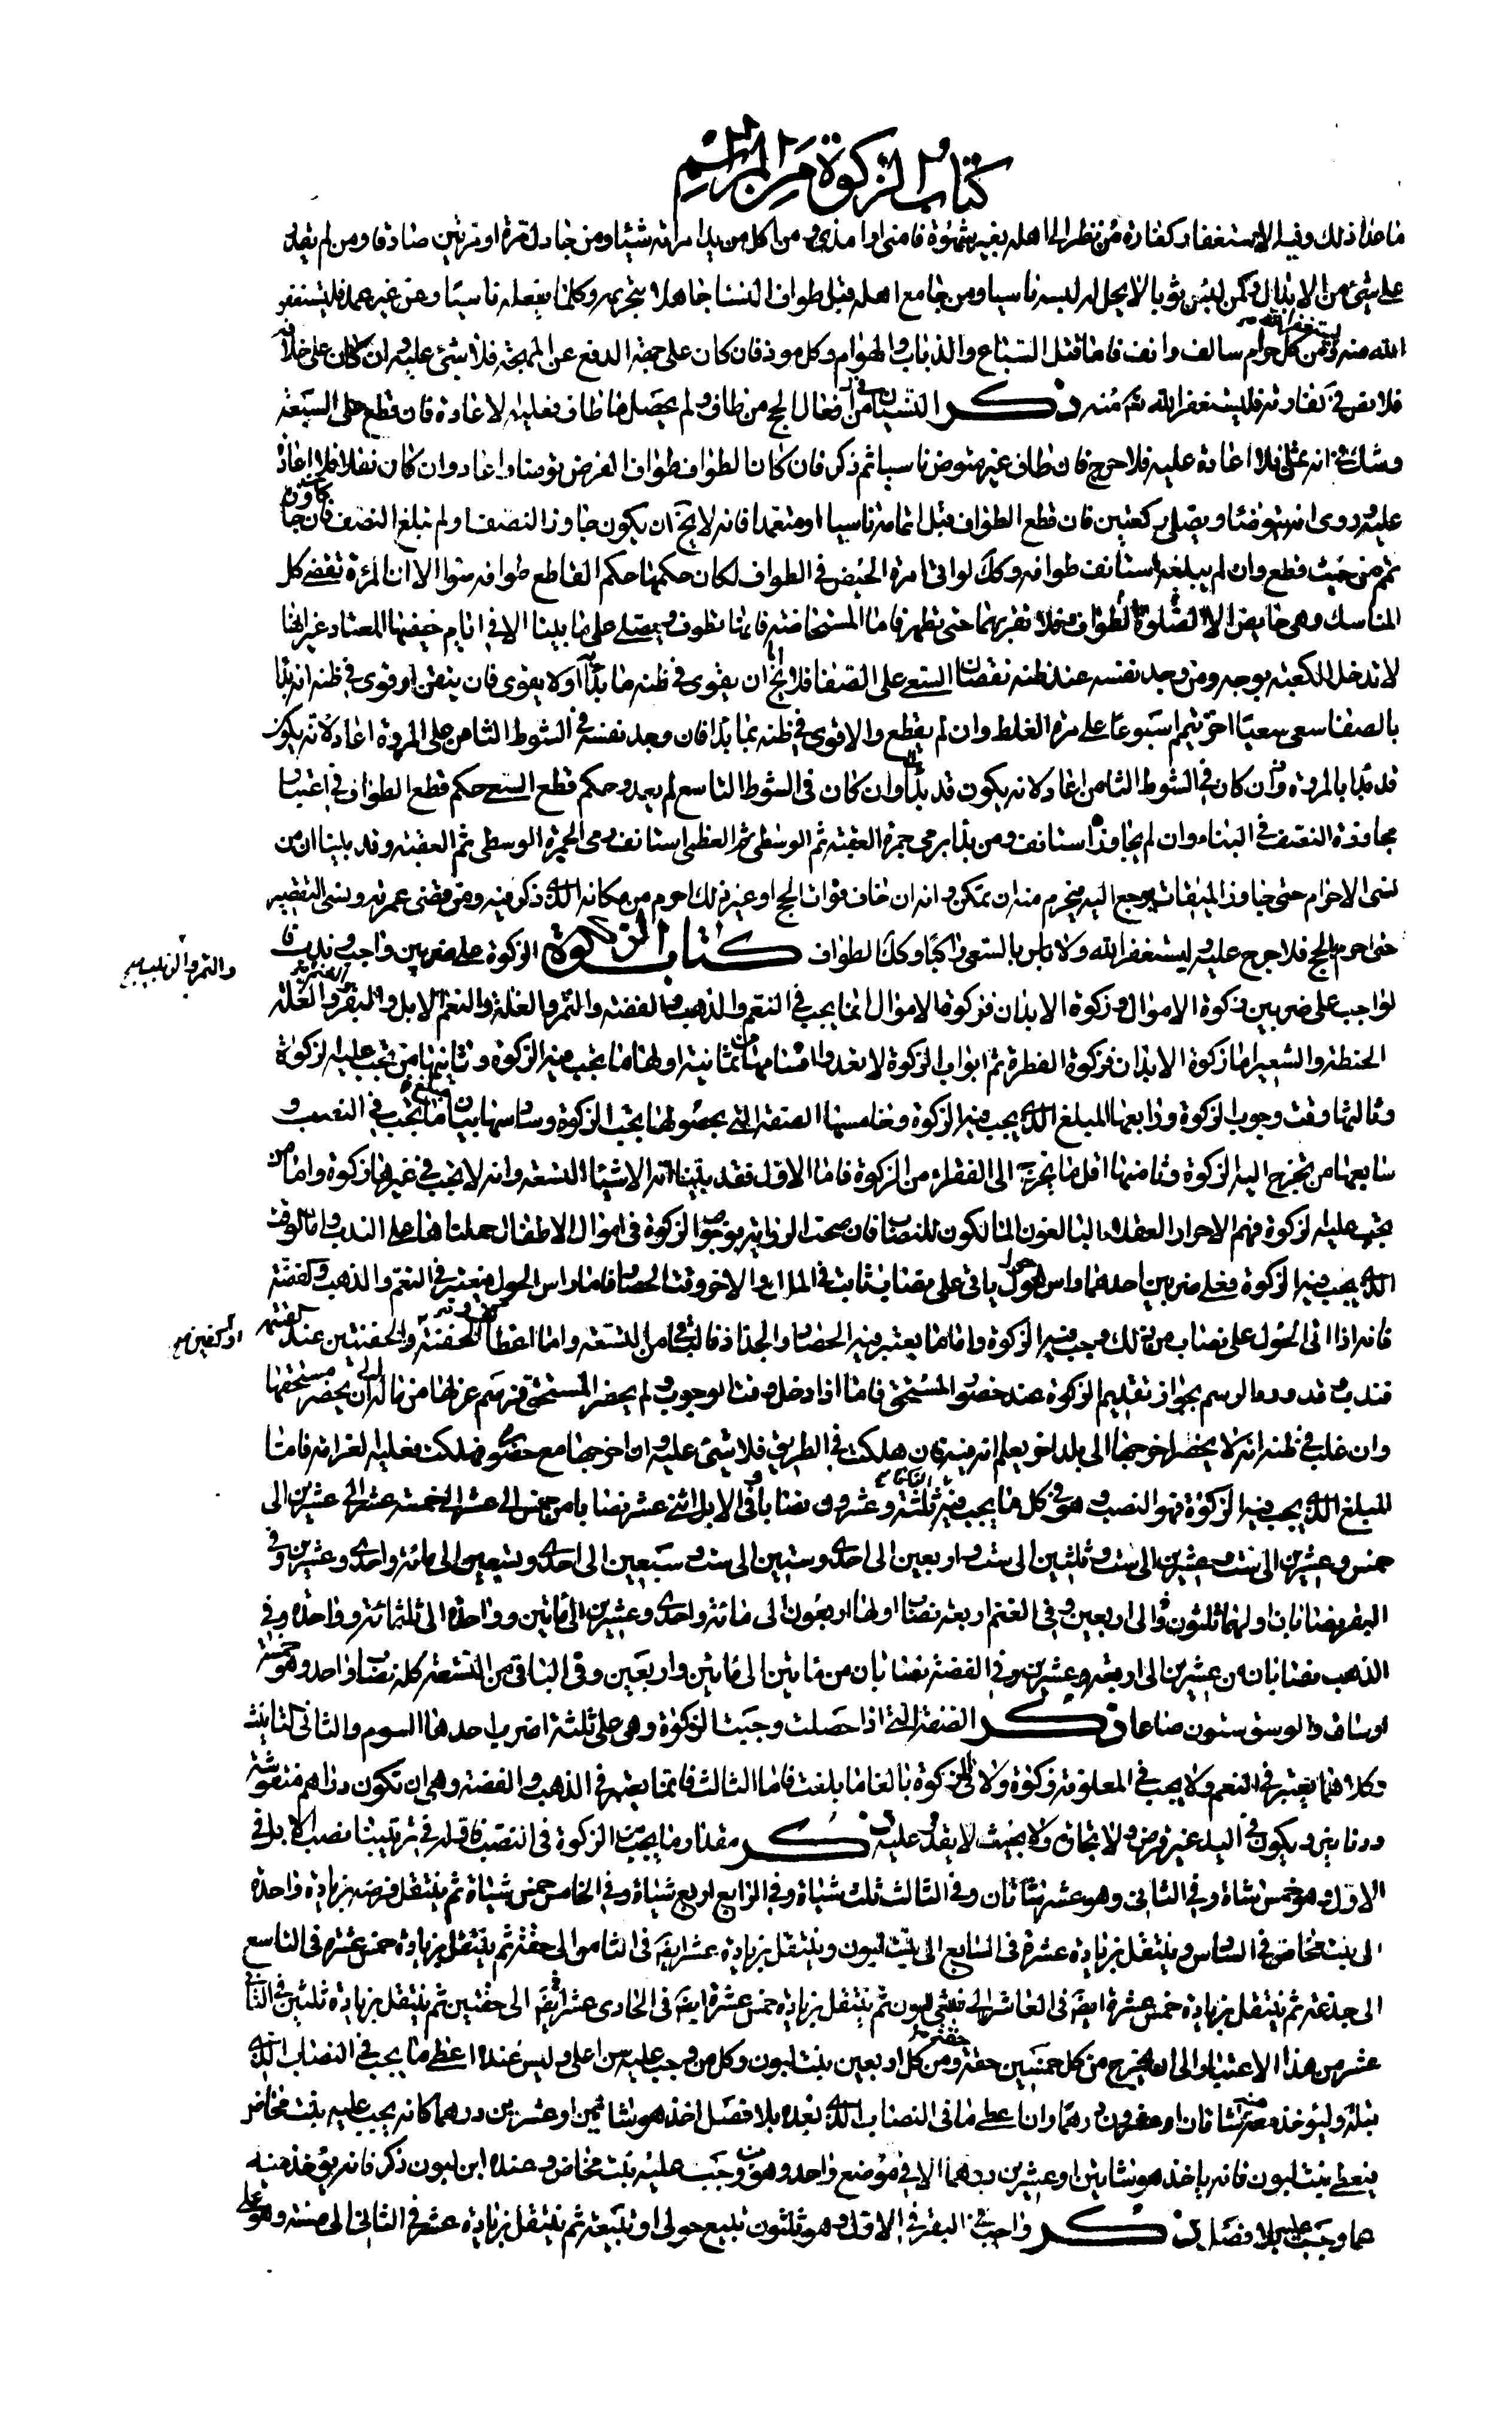 كتاب الزكوة من المراسم
ما عدا ذلك وفيه الاستغفار كفارة من نظر الى اهله بغير شهوة فامنى او امذى ومن اكل من يد امراته شيئا ومن جادل مرة او مرتين صادقا ومن لم يقدر
على شئ من الابدال وكمن لبس ثوبا لا يحل له لبسه ناسيا ومن جامع اهله قبل طواف النسا جاهلا بتحريمه وكلما يفعله ناسيا وعن غير عمد فليستغفر
الله منه ومن كل حرام سالف وانف فاما قتل السباع والذباب والهوام وكل موذ فان كان على جهة الدفع عن المهجة فلا شئ عليه وان كان على خلافه
فلا نص في كفارته فليستغفر الله ثم منه ذكر النسيان في افعال الحج من طاف ولم يحصل ما طاف فعليه الاعادة فان قطع على السبعة
وشك في انه ثمنى فلا اعادة عليه فلا حرج فان طاف غير متوض ناسيا ثم ذكر فان كان الطواف طواف الفرض توضا واعاد وان كان نفلا فلا اعادة
عليه روى انه يتوضأ ويصلى ركعتين فان قطع الطواف قبل اتمامه ناسيا او متعمدا فانه لا يخ ان يكون جاوز النصف او لم يبلغ النصف فان جاوزه
تمم من حيث قطع وان لم يبلغه استانف طوافه وكك لو اتى امرة الحيض في الطواف لكان حكمها حكم القاطع طوافه سوا الا ان المرئة تقضى كل
المناسك وهى حايض الا الصلوة والطواف فلا تقربهما حتى تطهر فاما المستحاضة فانها تطوف وتصلى على ما بينا الا في ايام حيضها المعتاد غير انها
لا تدخل الكعبة بوجه ومن وجد نفسه عند ظنه نقصان السعى على الصفا فلا يخ ان يقوى في ظنه ما بدأ او لا يقوى فان يتقن او قوى في ظنه انه بدا
بالصفا سعى سعيا اخر يتم اسبوعا على مرة الغلط وان لم يقطع والا قوى في ظنه بما بدا فان وجد نفسه في الشوط الثامن على المروة اعاد لانه يكون
قد بدا بالمروة وان كان في الشوط الثامن اعاد لانه يكون قد بدأ وان كان في الشوط التاسع لم يعد وحكم قطع السعى حكم قطع الطواف في اعتبار
مجاوزة النصف في البناء وان لم يجاوز استانف ومن بدأ برمى جمرة العقبة ثم الوسطى ثم العظمى استانف رمى الجمرة الوسطى ثم العقبة وقد بينا ان من
نسى الاحرام حتى جاوز الميقات يرجع اليه فيحرم منه ان تمكن وانه ان خاف فوات الحج او غير ذلك احرم من مكانه الذى ذكر فيه ومن قضى عمرته ونسى التقصير
حتى احرم بالحج فلا حرج عليه ليستغفر الله ولا باس بالسعى راكبا وكك الطواف كتاب الزكوة الزكوة على ضربين واجب وندب فا
والتمر والزبيب
لواجب على ضربين زكوة الاموال وزكوة الابدان فزكوة الاموال انما يجب في النعم والذهب والفضة والتمر والغلة والنعم الابل والبقر والغلة
الحنطة والشعير اما زكوة الابدان فزكوة الفطرة ثم ابواب الزكوة لا تعدوا اقسامها ثمانية اولها ما تجب فيه الزكوة وثانيها من تجب عليه الزكوة
وثالثها وقت وجوب الزكوة ورابعها المبلغ الذى يجب فيه الزكوة وخامسها الصفة التى بحصولها تجب الزكوة وسادسها بيان ما يجب في النصب و
سابعها من تخرج اليه الزكوة وثامنها اقل ما يخرج الى الفقراء من الزكوة فاما الاول فقد بينا انه الاشياء التسعة وانه لا تجب في غيرها زكوة واما من
تجب عليه الزكوة فهم الاحرار العقلاء البالغون المالكون للنصاب فان صحت الرواية بوجوب الزكوة في اموال الاطفال حملناها على الندب واما الوقت
الذى يجب فيه الزكوة فعلى ضربين احدهما راس حول ياتى على نصاب ثابت في الملك والاخر وقت الحصاد فاما راس الحول فيعتبر في النعم والذهب والفضة
فانه اذا اتى الحول على نصاب من ذلك وجب فيه الزكوة واما ما يعتبر فيه الحصاد والجذاذ فالباقى من التسعة واما اعطا الحفنة والحفنتين عند
او كفين
فندب قد ورد الرسم بجواز تقديم الزكوة عند حضور المستحق فاما اذا دخل وقت الوجوب ولم يحضر المستحق فرسم عزلها من ماله الى ان يحضر مستحقها
وان غلب في ظنه انه لا يحضر اخرجها الى بلد اخر يعلم انه فيه فان هلكت في الطريق فلا شئ عليه وان اخرجها مع حضوره فهلكت فعليه الغرامة فاما
المبلغ الذى يجب فيه الزكوة فهو النصب وهى في كل ما يجب فيه ثلثة وعشرون نصابا في الابل اثنى عشر نصابا من خمس الى عشر الى خمسة عشر الى عشرين الى
خمس وعشرين الى ست وعشرين الى ست وثلثين الى ست واربعين الى احدى وستين الى ست وسبعين الى احدى وتسعين الى مائة واحدى وعشرين وفي
البقر نصابان اولهما ثلثون والى اربعين وفي الغنم اربعة نصاب اولها اربعون الى مائة واحدى وعشرين الى مأتين وواحدة الى ثلثمائة وواحدة وفي
الذهب نصابان من عشرين الى اربعة وعشرين وفي الفضة نصابان من مأتين الى مأتين واربعين وفي الباقى من التسعة كله نصاب واحد وهو خمسة
اوساق والوسق ستون صاعا ذكر الصفة التى اذا حصلت وجبت الزكوة وهى على ثلثة اضرب احدهما السوم والثانى التأنيث
وكلاهما يعتبر في النعم ولا يجب في المعلوفة زكوة ولا في الذكورة بالغا ما بلغت فاما الثالث فانما يعتبر في الذهب والفضة وهى ان تكون دراهم منقوشة
ودنانير ويكون في اليد غير قرض ولا نحاق ولا بحيث لا يقدر عليه ذكر مقدار ما يجب من الزكوة في النصب فاوله في ترتيبنا نصب الابل في
الاول وهو خمس شاة وفي الثانى وهو عشر شاتان وفي الثالث ثلث شياة وفي الرابع اربع شياة وفي الخامس خمس شياة ثم ينتقل فرضه بزيادة واحدة
الى بنت مخاض في السادس وينتقل بزيادة عشرة في السابع الى بنت لبون وينتقل بزيادة عشر ايضا في الثامن الى حقة ثم ينتقل بزيادة خمس عشرة في التاسع
الى جذعة ثم ينتقل بزيادة خمس عشرة ايض في العاشر الى بنتى لبون ثم ينتقل بزيادة خمس عشرة ايض في الحادى عشر الى حقتين ثم ينتقل بزيادة ثلثين في الثانى
عشر من هذا الاعتبار الى ان يخرج من كل خمسين حقة ومن كل اربعين بنت لبون وكل من وجب عليه سن اعلى وليس عنده اعطى ما يجب في النصاب الذى
قبله وليؤخذ معه شاتان او عشرون درهما وان اعطى ما في النصاب الذى بعده بلا فصل اخذ هو شاتين او عشرين درهما كانه يجب عليه بنت مخاض
فيعطى بنت لبون فانه ياخذ هو شاتين او عشرين درهما الا في موضع واحد وهو من وجب عليه بنت مخاض وعنده ابن لبون ذكر فانه يؤخذ منه
عما وجبت عليه بلا فصل ذكر واجب في البقر في الاول وهو ثلثون تبيع حولى او تبيعة ثم ينتقل بزيادة عشر في الثانى الى مسنة وهو على